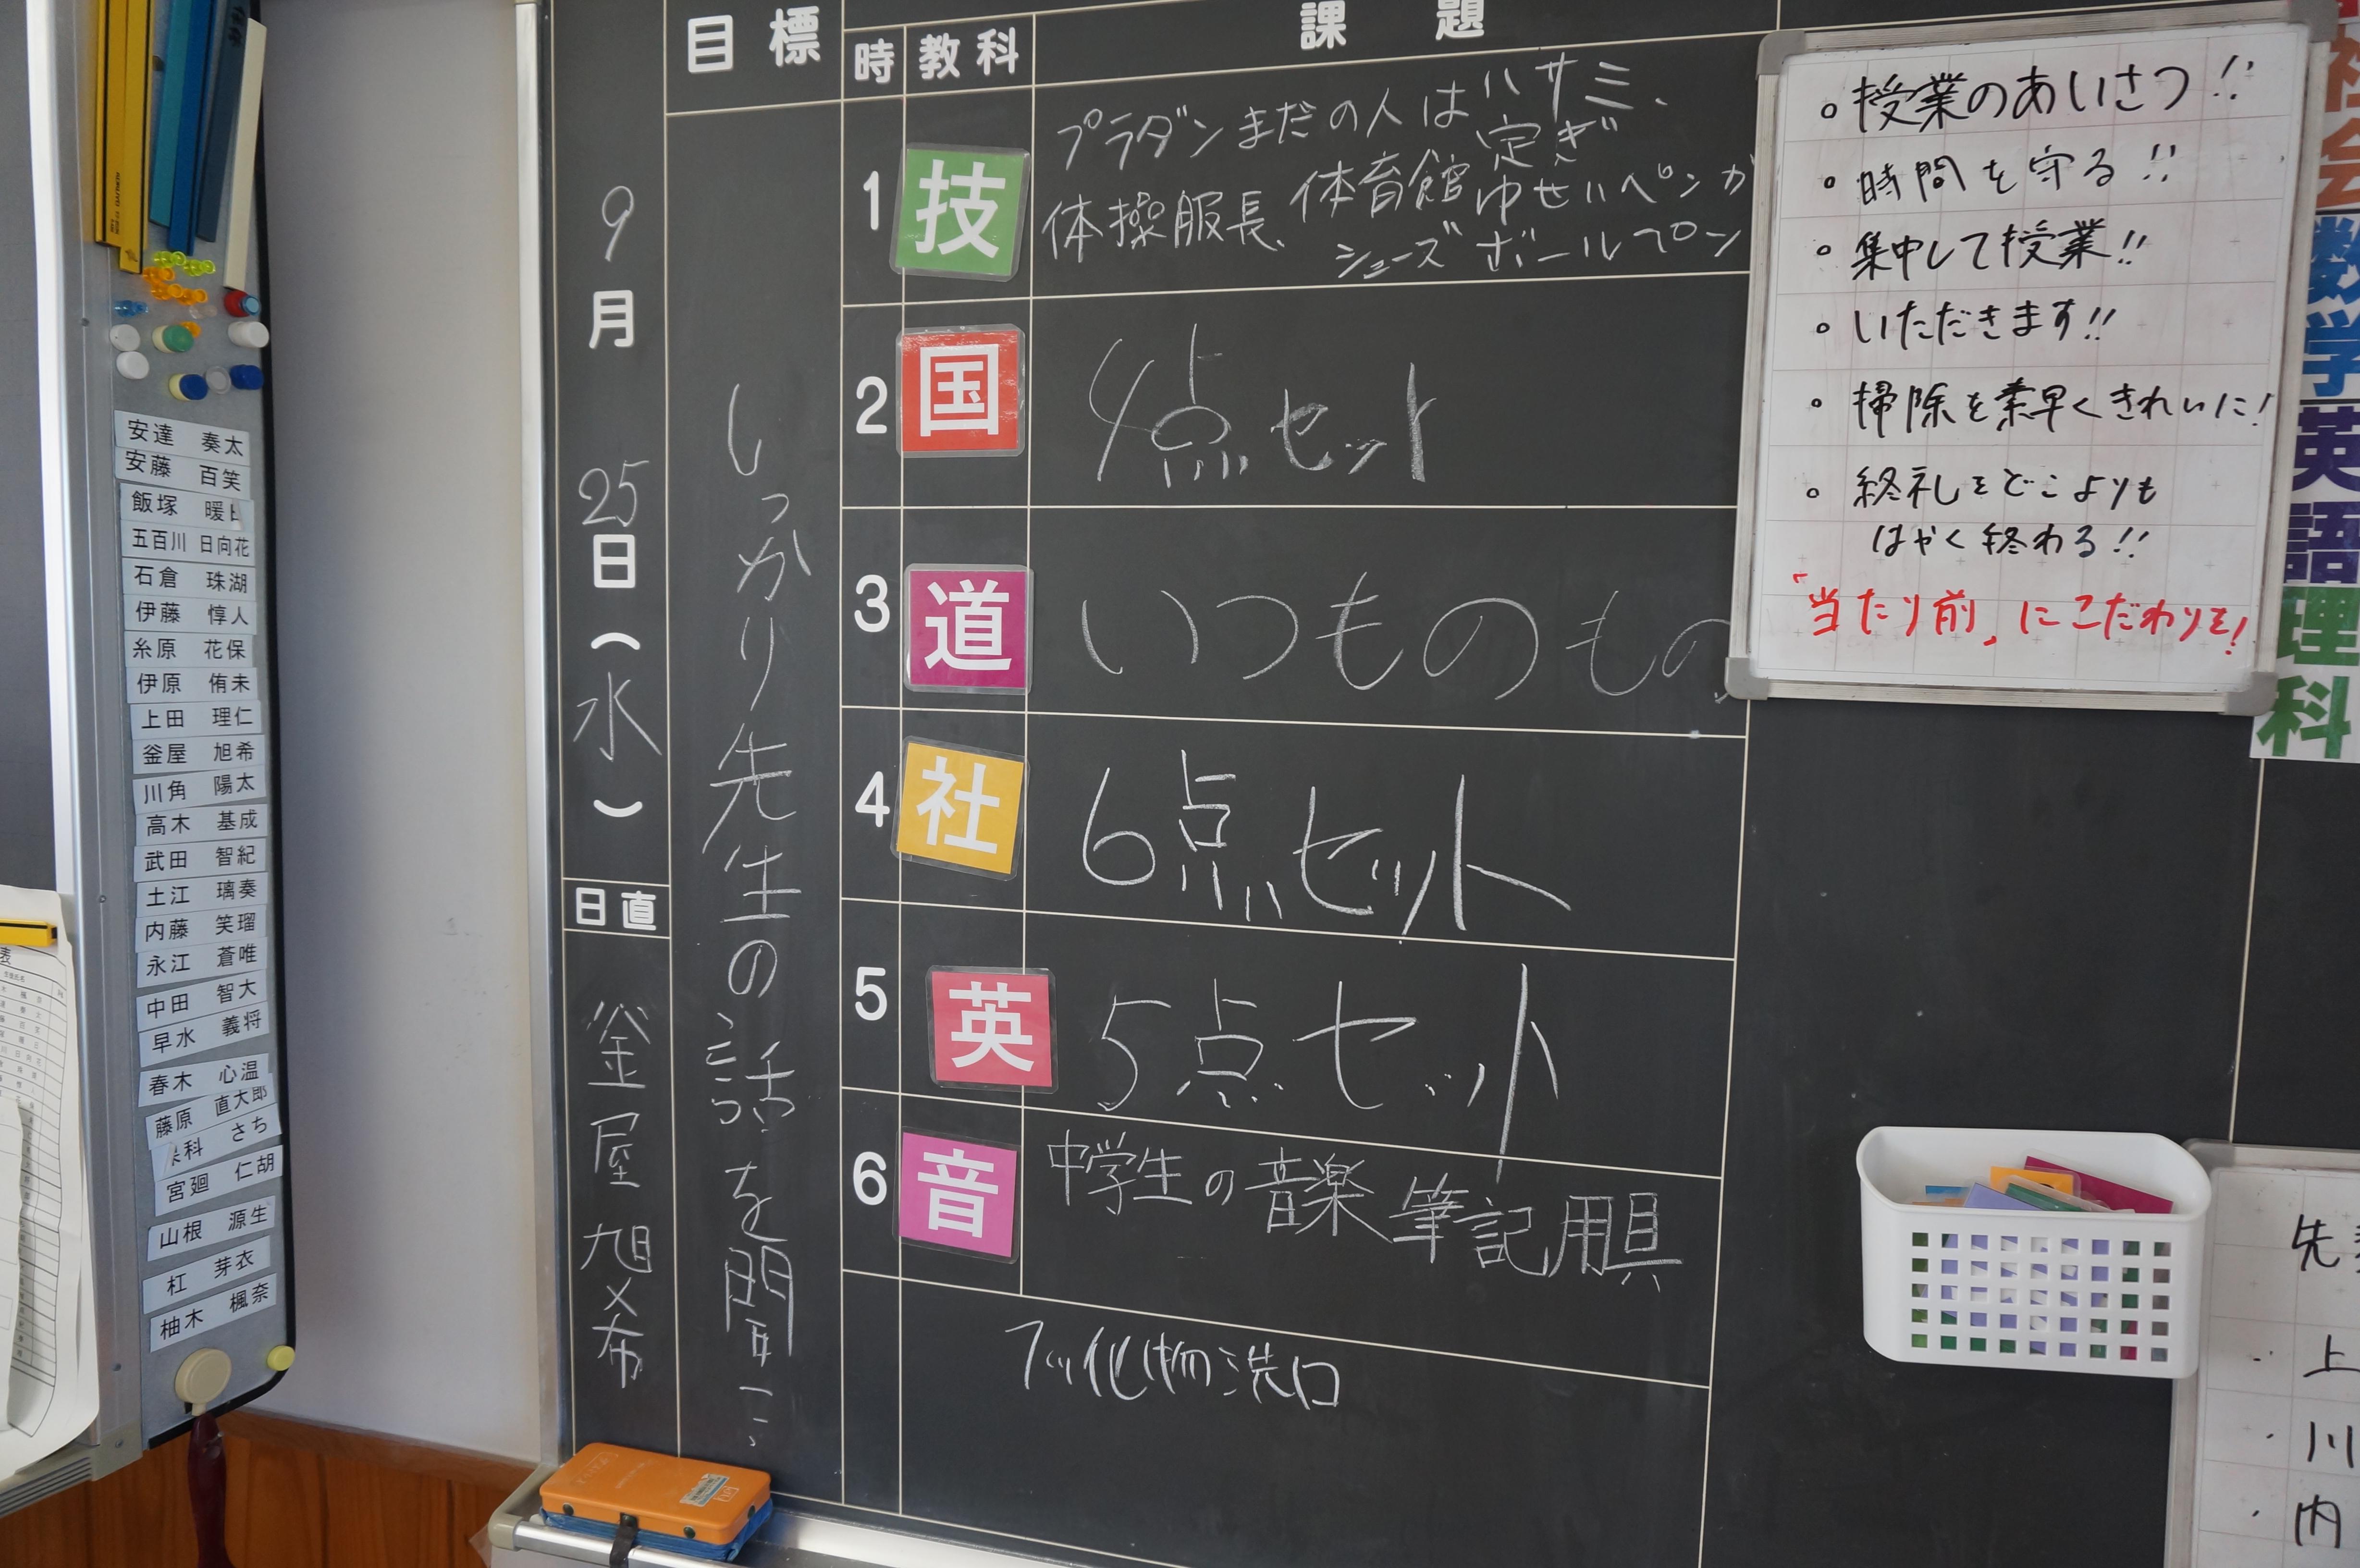 安達 奏太
安藤 百笑
飯塚 暖
五百川 日向花
石倉 珠湖
伊藤 惇人
糸原 花保
伊原 侑未
上田 理仁
釜屋 旭希
川角 陽太
高木 基成
武田 智紀
土江 璃奏
内藤 笑瑠
永江 蒼唯
中田 智大
早水 義将
春木 心温
藤原 直太郎
科 さち
宮廻 仁胡
山根 源生
杠 芽衣
柚木 楓奈
表
9月25日(水)
日直
釜屋旭希
目標
しっかり先生の話を聞こう
時 教科 課題
1 技
プラダンまだの人はハサミ、
定ぎ
体操服長、体育館シューズ
ゆせいペンか
ボールペン
2 国 4点セット
3 道 いつものもの
4 社 6点セット
5 英 5点セット
6 音 中学生の音楽 筆記用具
フッ化物洗口
。授業のあいさつ!!
。時間を守る!!
。集中して授業!!
。いただきます!!
。掃除を素早くきれいに!
。終礼をどこよりも
はやく終わる!!
「当たり前」にこだわりを!
社会
数学
英語
理科
先
・上
・川
・内